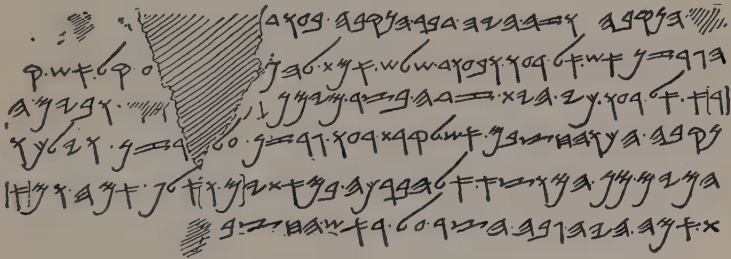 𐤄𐤍𐤒𐤁𐤄 𐤅𐤆𐤄.𐤄𐤉𐤄.𐤃𐤁𐤓.𐤄𐤍𐤒𐤁𐤄.𐤁𐤏𐤅𐤃
𐤄𐤂𐤓𐤆𐤍.𐤀𐤔.𐤀𐤋.𐤓𐤏𐤅.𐤅𐤁𐤏𐤅𐤃.𐤔𐤋𐤔.𐤀𐤌𐤕.𐤋𐤄𐤍 𐤏.𐤒𐤋.𐤀𐤔.𐤒
[𐤓]𐤀.𐤀𐤋.𐤓𐤏𐤅.𐤊𐤉.𐤄𐤉𐤕.𐤆𐤃𐤄.𐤁𐤑𐤓.𐤌𐤉𐤌𐤍 𐤅𐤁𐤉𐤌.𐤄
𐤍𐤒𐤁𐤄.𐤄𐤊𐤅.𐤄𐤇𐤑𐤁𐤌.𐤀𐤔.𐤋𐤒𐤓𐤕.𐤓𐤏𐤅.𐤂𐤓𐤆𐤍.𐤏𐤋.𐤂𐤓𐤆𐤍.𐤅𐤉𐤋𐤊𐤅
𐤄𐤌𐤉𐤌.𐤌𐤍.𐤄𐤌𐤅𐤑𐤀.𐤀𐤋.𐤄𐤁𐤓𐤊𐤄.𐤁𐤌𐤀𐤕𐤉[𐤌.𐤅]𐤀𐤋𐤐.𐤀𐤌𐤄.𐤅𐤌[𐤀]
𐤕.𐤀𐤌𐤄.𐤄𐤉𐤄.𐤂𐤁𐤄.𐤄𐤑𐤓.𐤏𐤋.𐤓𐤀𐤔.𐤄𐤇𐤑𐤁